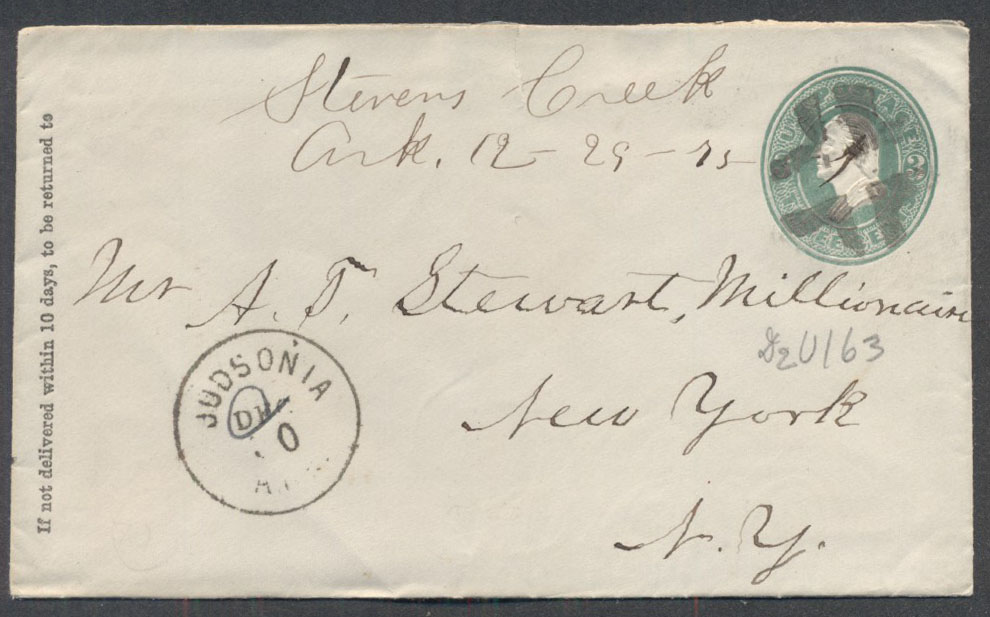 If not delivered within 10 days, to be returned to
Stevens Creek
Ark. 12-29-75
U.S. POSTAGE
3
THREE
Mr A. T. Stewart, Millionaire
D2 U163
JUDSONIA
DEC
0
New York
N.Y.